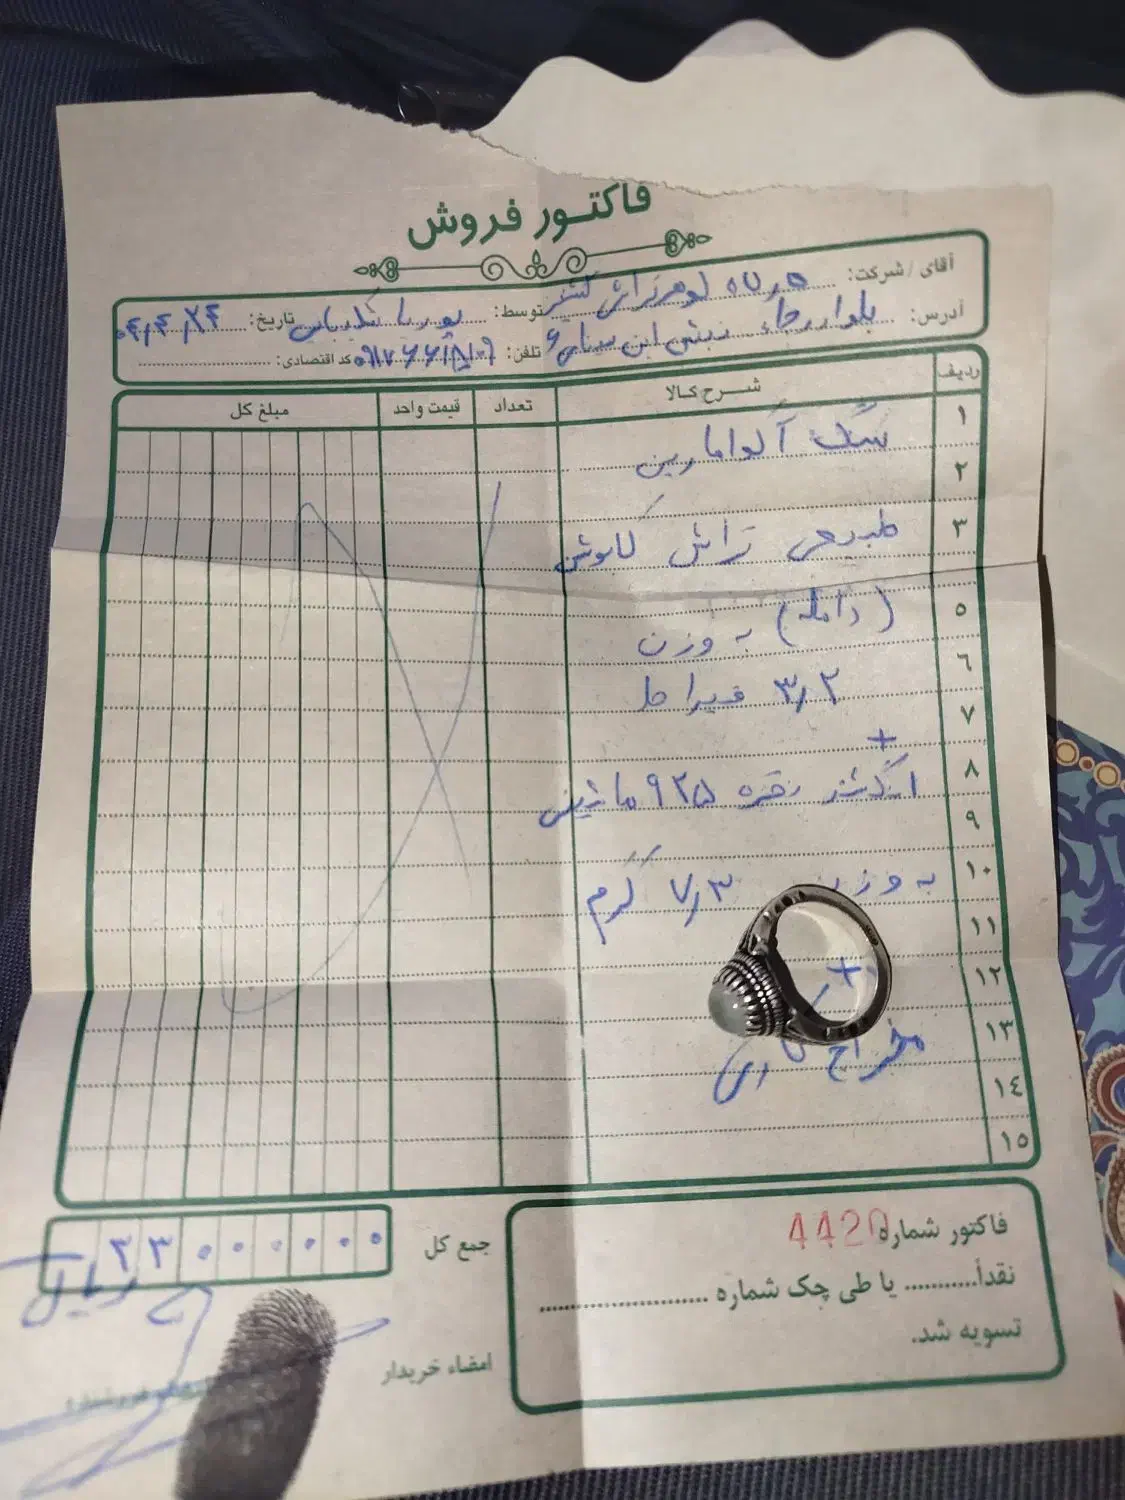 فاکتور فروش
آقای / شرکت:
توسط:
تاریخ: ۰۴٫۴٫۲۴
آدرس: بلوار رجاء نبش ابن سینای ۶
تلفن:
کد اقتصادی:
ردیف شرح کالا تعداد قیمت واحد مبلغ کل
۱ سنگ آکوامارین
۲
۳ طبیعی تراش کابوشن
۵ (دامله) به وزن
۶
۷ ۳٫۲ قیراط
۸ +
۹ انگشتر نقره ۹۲۵ ماشینی
۱۰ به وزن ۷٫۳ گرم
۱۱
۱۲ +
۱۳ مخراج کاری
۱۴
۱۵
جمع کل ۲۳۰۰۰۰۰۰۰ ریال
فاکتور شماره 4420
نقداً........... یا طی چک شماره ........................
تسویه شد.
امضاء خریدار